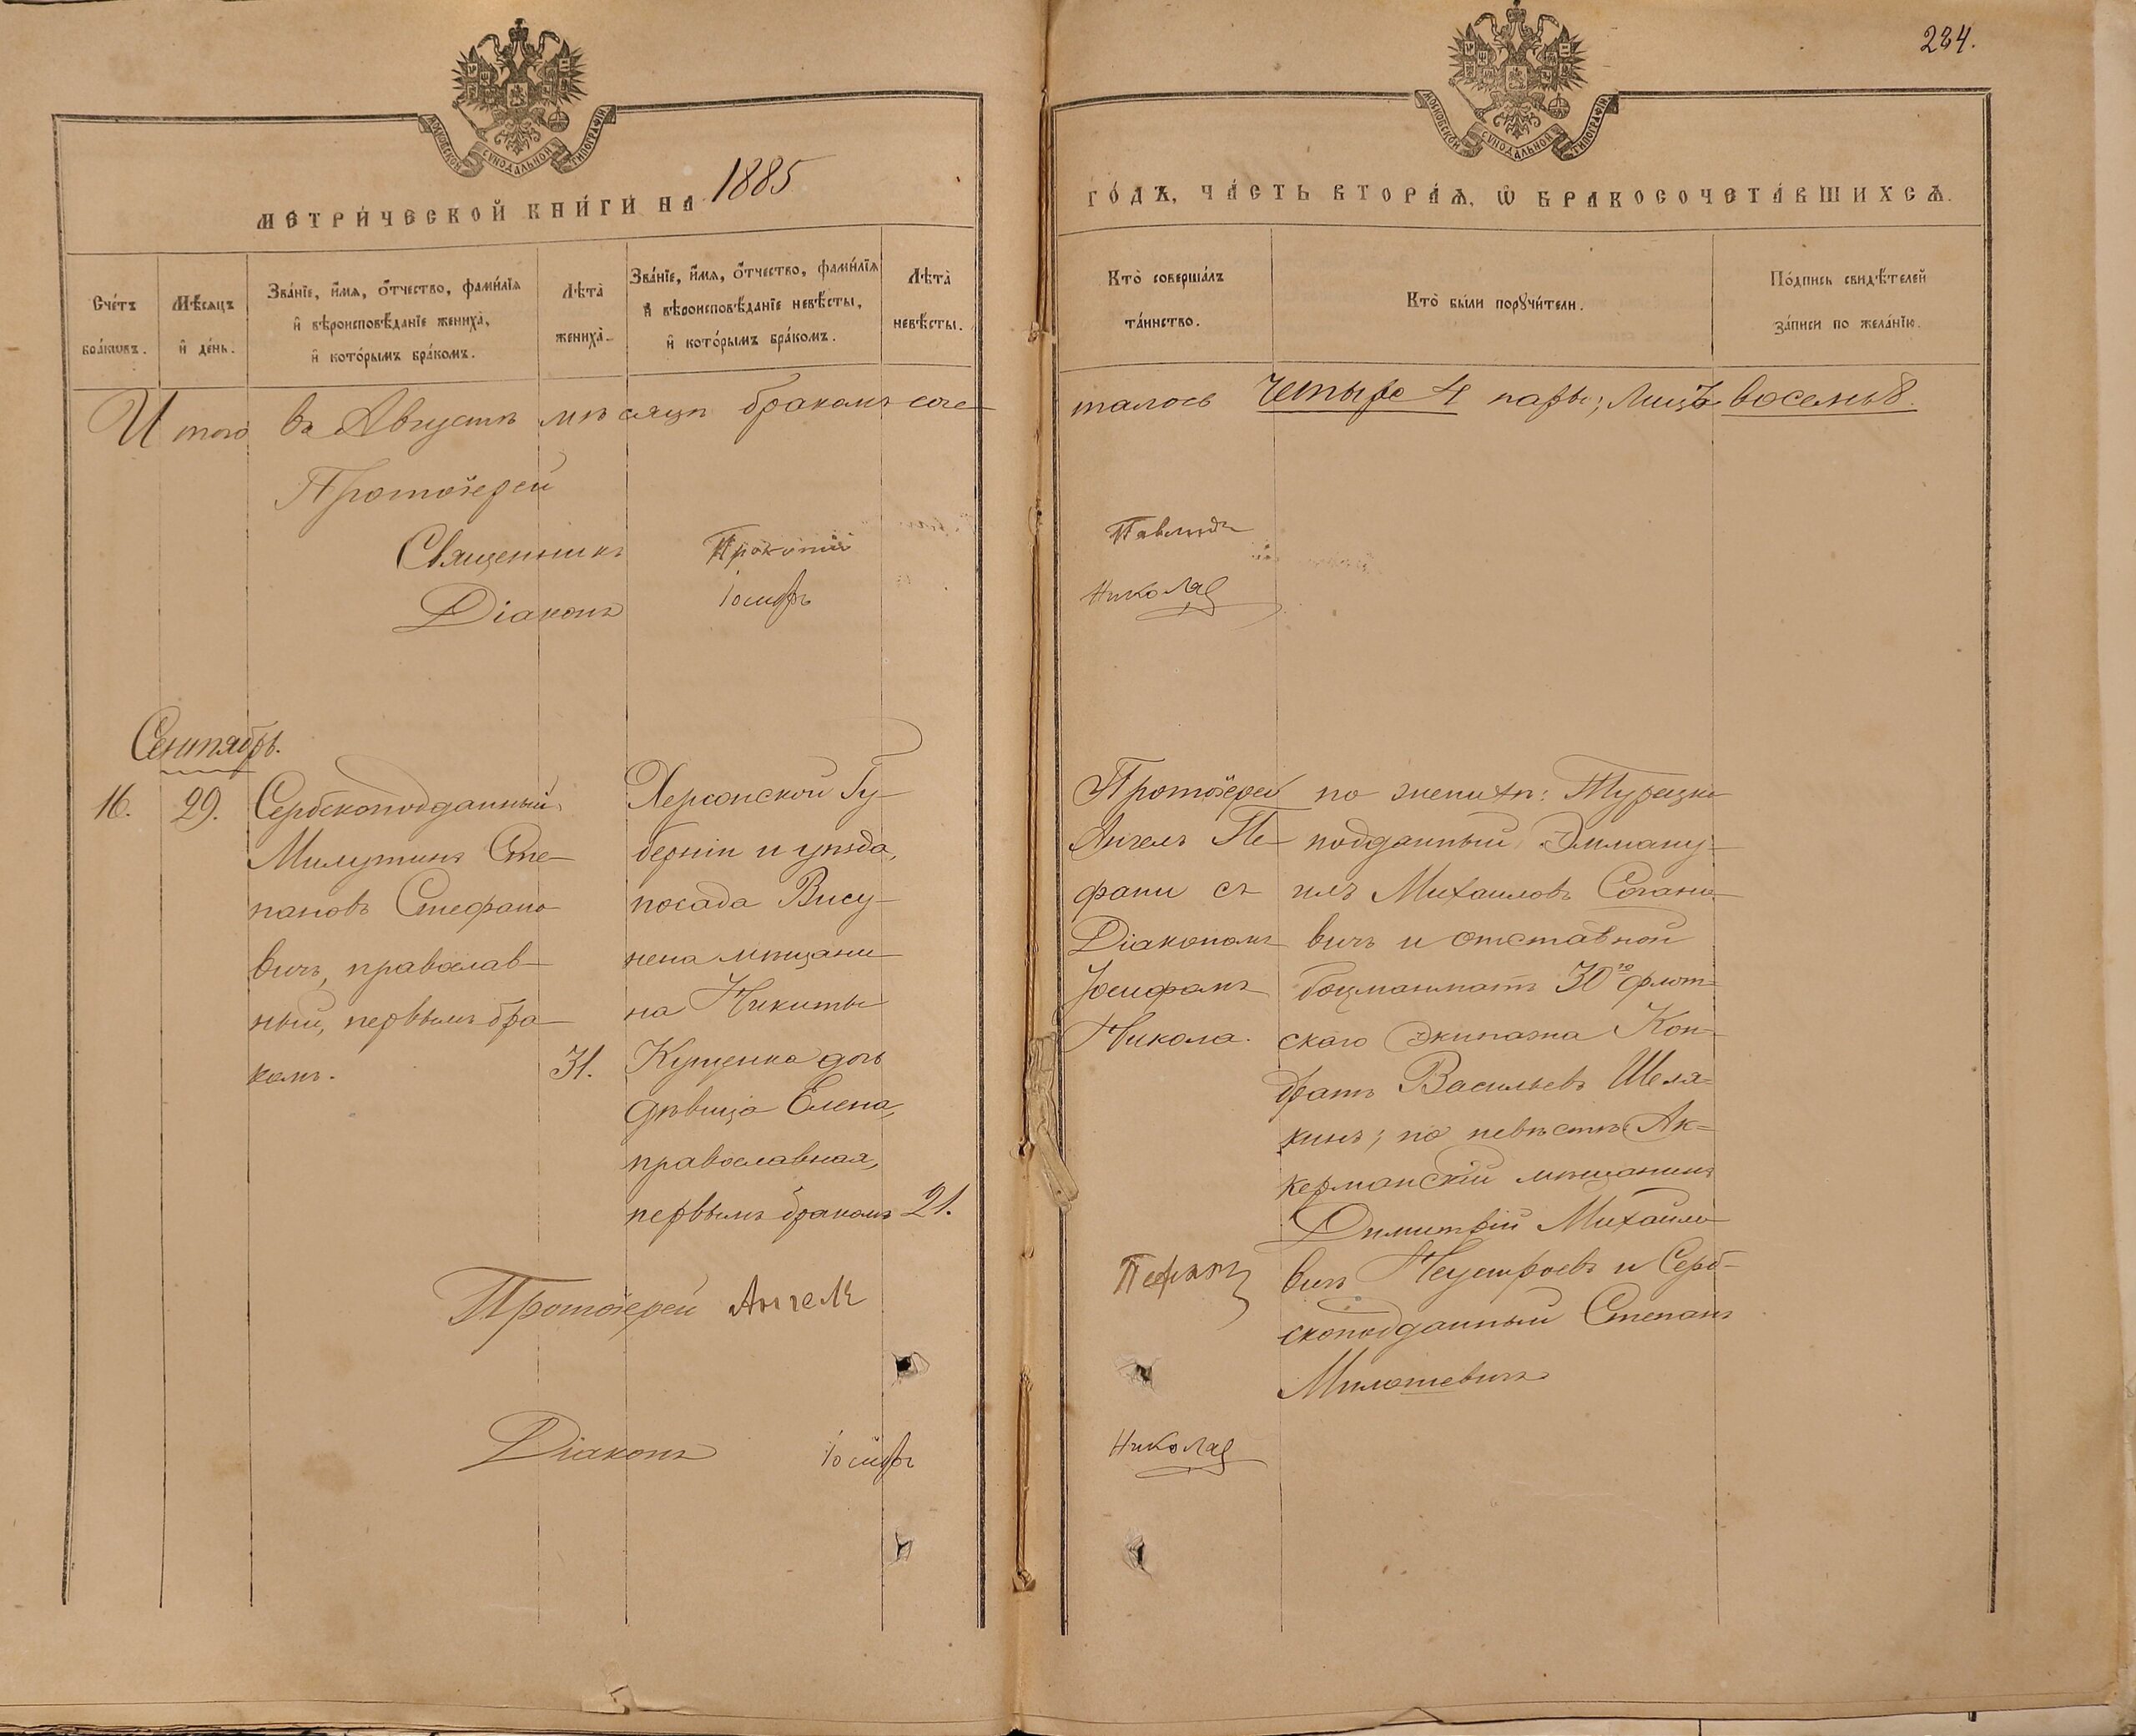 284.
МОСКОВСКОЙ СѴНОДАЛЬНОЙ ТИПОГРАФІИ
МОСКОВСКОЙ СѴНОДАЛЬНОЙ ТИПОГРАФІИ
МЕТРИ́ЧЕСКОЙ КНИ́ГИ НА 1885
ГО́ДЪ, ЧА́СТЬ ВТОРА́Ѧ, Ѡ БРАКОСОЧЕТА́ВШИХСѦ.
Сче́тъ
бра́кѡвъ.
Мѣ́сѧцъ
и҆ де́нь.
Зва́нїе, и҆́мѧ, ѻ҆́тчество, фами́лїѧ
и҆ вѣроисповѣ́данїе жениха̀,
и҆ кото́рымъ бра́комъ.
Лѣ́та̀
жениха̀.
Зва́нїе, и҆́мѧ, ѻ҆́тчество, фами́лїѧ
и҆ вѣроисповѣ́данїе невѣ́сты,
и҆ кото́рымъ бра́комъ.
Лѣ́та̀
невѣ́сты.
Кто̀ соверша́лъ
та́инство.
Кто̀ бы́ли порꙋчи́тели.
По́дпись свидѣ́телей
за́писи по жела́нїю.
Итого въ Августѣ мѣсяцѣ бракомъ соче-
талось четыре 4 пары; лицъ восемь 8.
Протоіерей
Священникъ Прокопій
Діаконъ Іосифъ
Николад
Сентябрь.
16. 29.
Сербскоподданный
Милутинъ Сте-
пановъ Стефано-
вичъ, православ-
ный, первымъ бра-
комъ. 31.
Херсонской Гу-
берніи и уѣзда,
посада Вису-
нена мѣщани-
на Никиты
Кущенка дочь
дѣвица Елена,
православная,
первымъ бракомъ 21.
Протоіерей
Ангелъ Пе-
фани съ
Діакономъ
Іосифомъ
Никола.
по женихѣ: Турецко-
подданный Эммануилъ Михаиловъ
вичъ и отставной
боцманматъ 30го флот-
скаго Экипажа Кон-
дратъ Васильевъ Шеля-
кинъ; по невѣстѣ: Ак-
керманскій мѣщанинъ
Димитрій Михайло-
вичъ Неустроевъ и Серб-
скоподданный Степанъ
Милошевичъ
Протоіерей Ангелъ Пефани
Діаконъ Іосифъ Николад